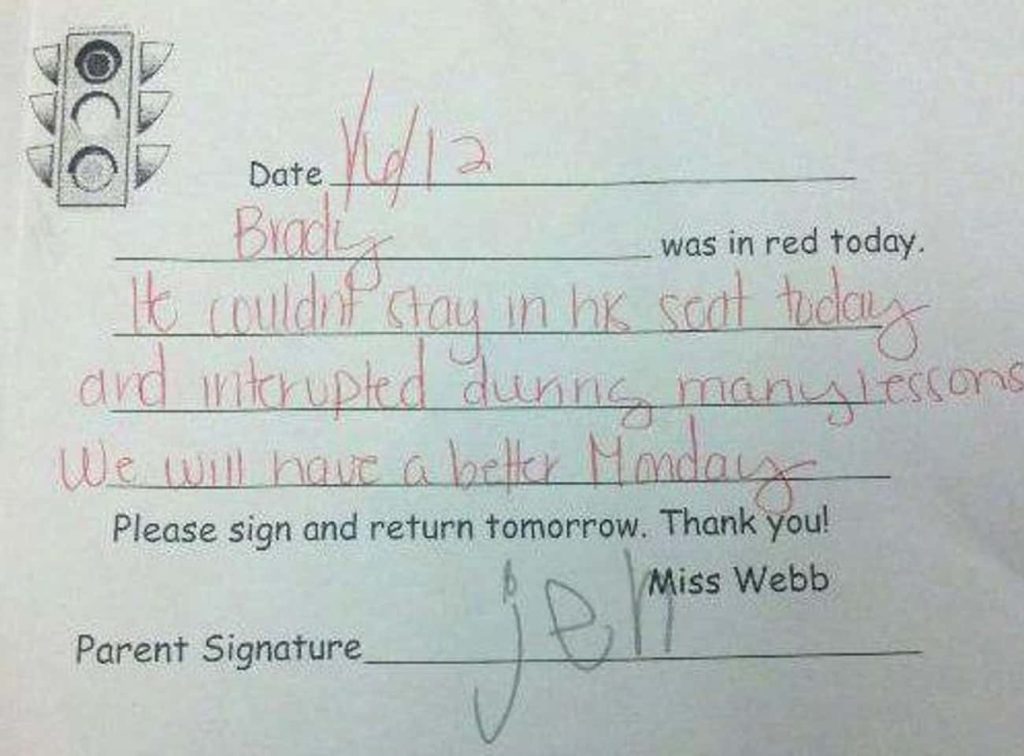 Date 1/6/12
Brady was in red today.
He couldn't stay in his seat today
and interupted during many lessons
We will have a better Monday
Please sign and return tomorrow. Thank you!
Miss Webb
Parent Signature jen